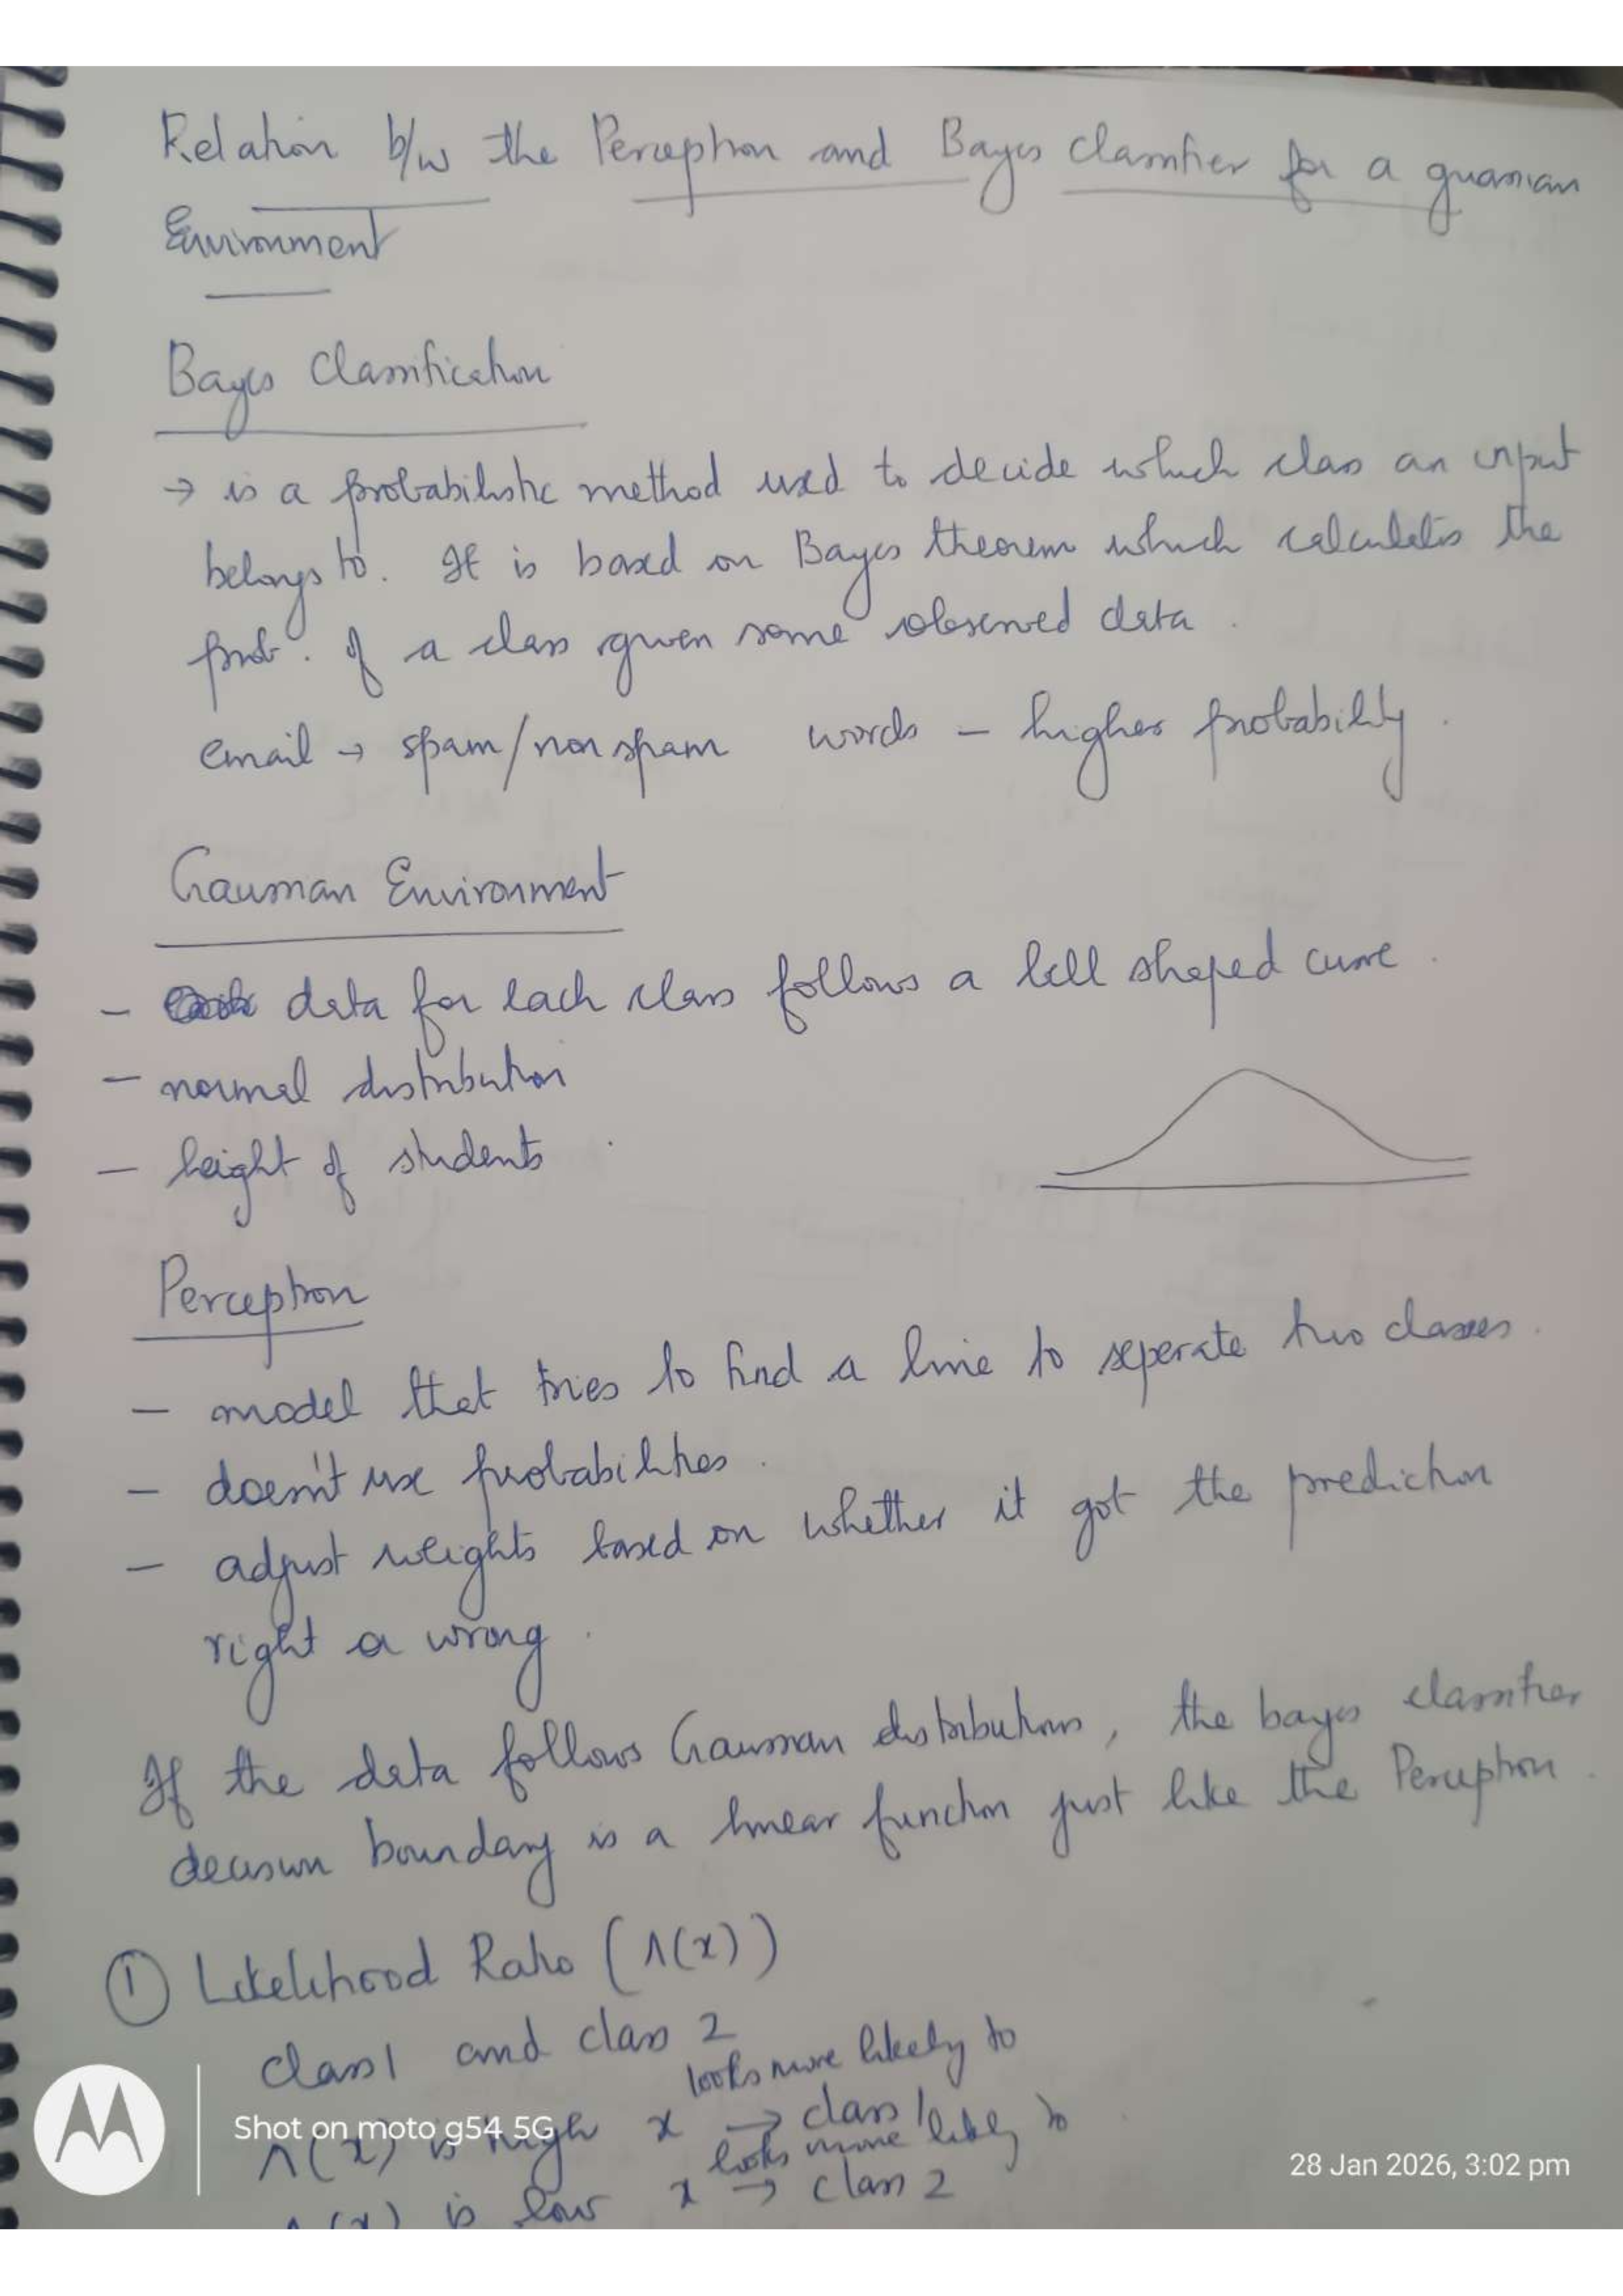 Relation b/w the Perceptron and Bayes classifier for a guassian
Environment
Bayes Classification
→ is a probabilistic method used to decide which class an input
belongs to. It is based on Bayes theorem which calculates the
prob. of a class given some observed data.
email → spam/non spam words - higher probability.
Gaussian Environment
- data for each class follows a bell shaped curve.
- normal distribution
- height of students.
Perceptron
- model that tries to find a line to seperate two classes.
- doesn't use probabilities.
- adjust weights based on whether it got the prediction
right or wrong.
If the data follows Gaussian distributions, the bayes classifier
decision boundary is a linear function just like the Perceptron.
① Likelihood Ratio (Λ(x))
class 1 and class 2
looks more likely to
Λ(x) is high x → class 1
looks more likely to
Λ(x) is low x → class 2
Shot on moto g54 5G
28 Jan 2026, 3:02 pm